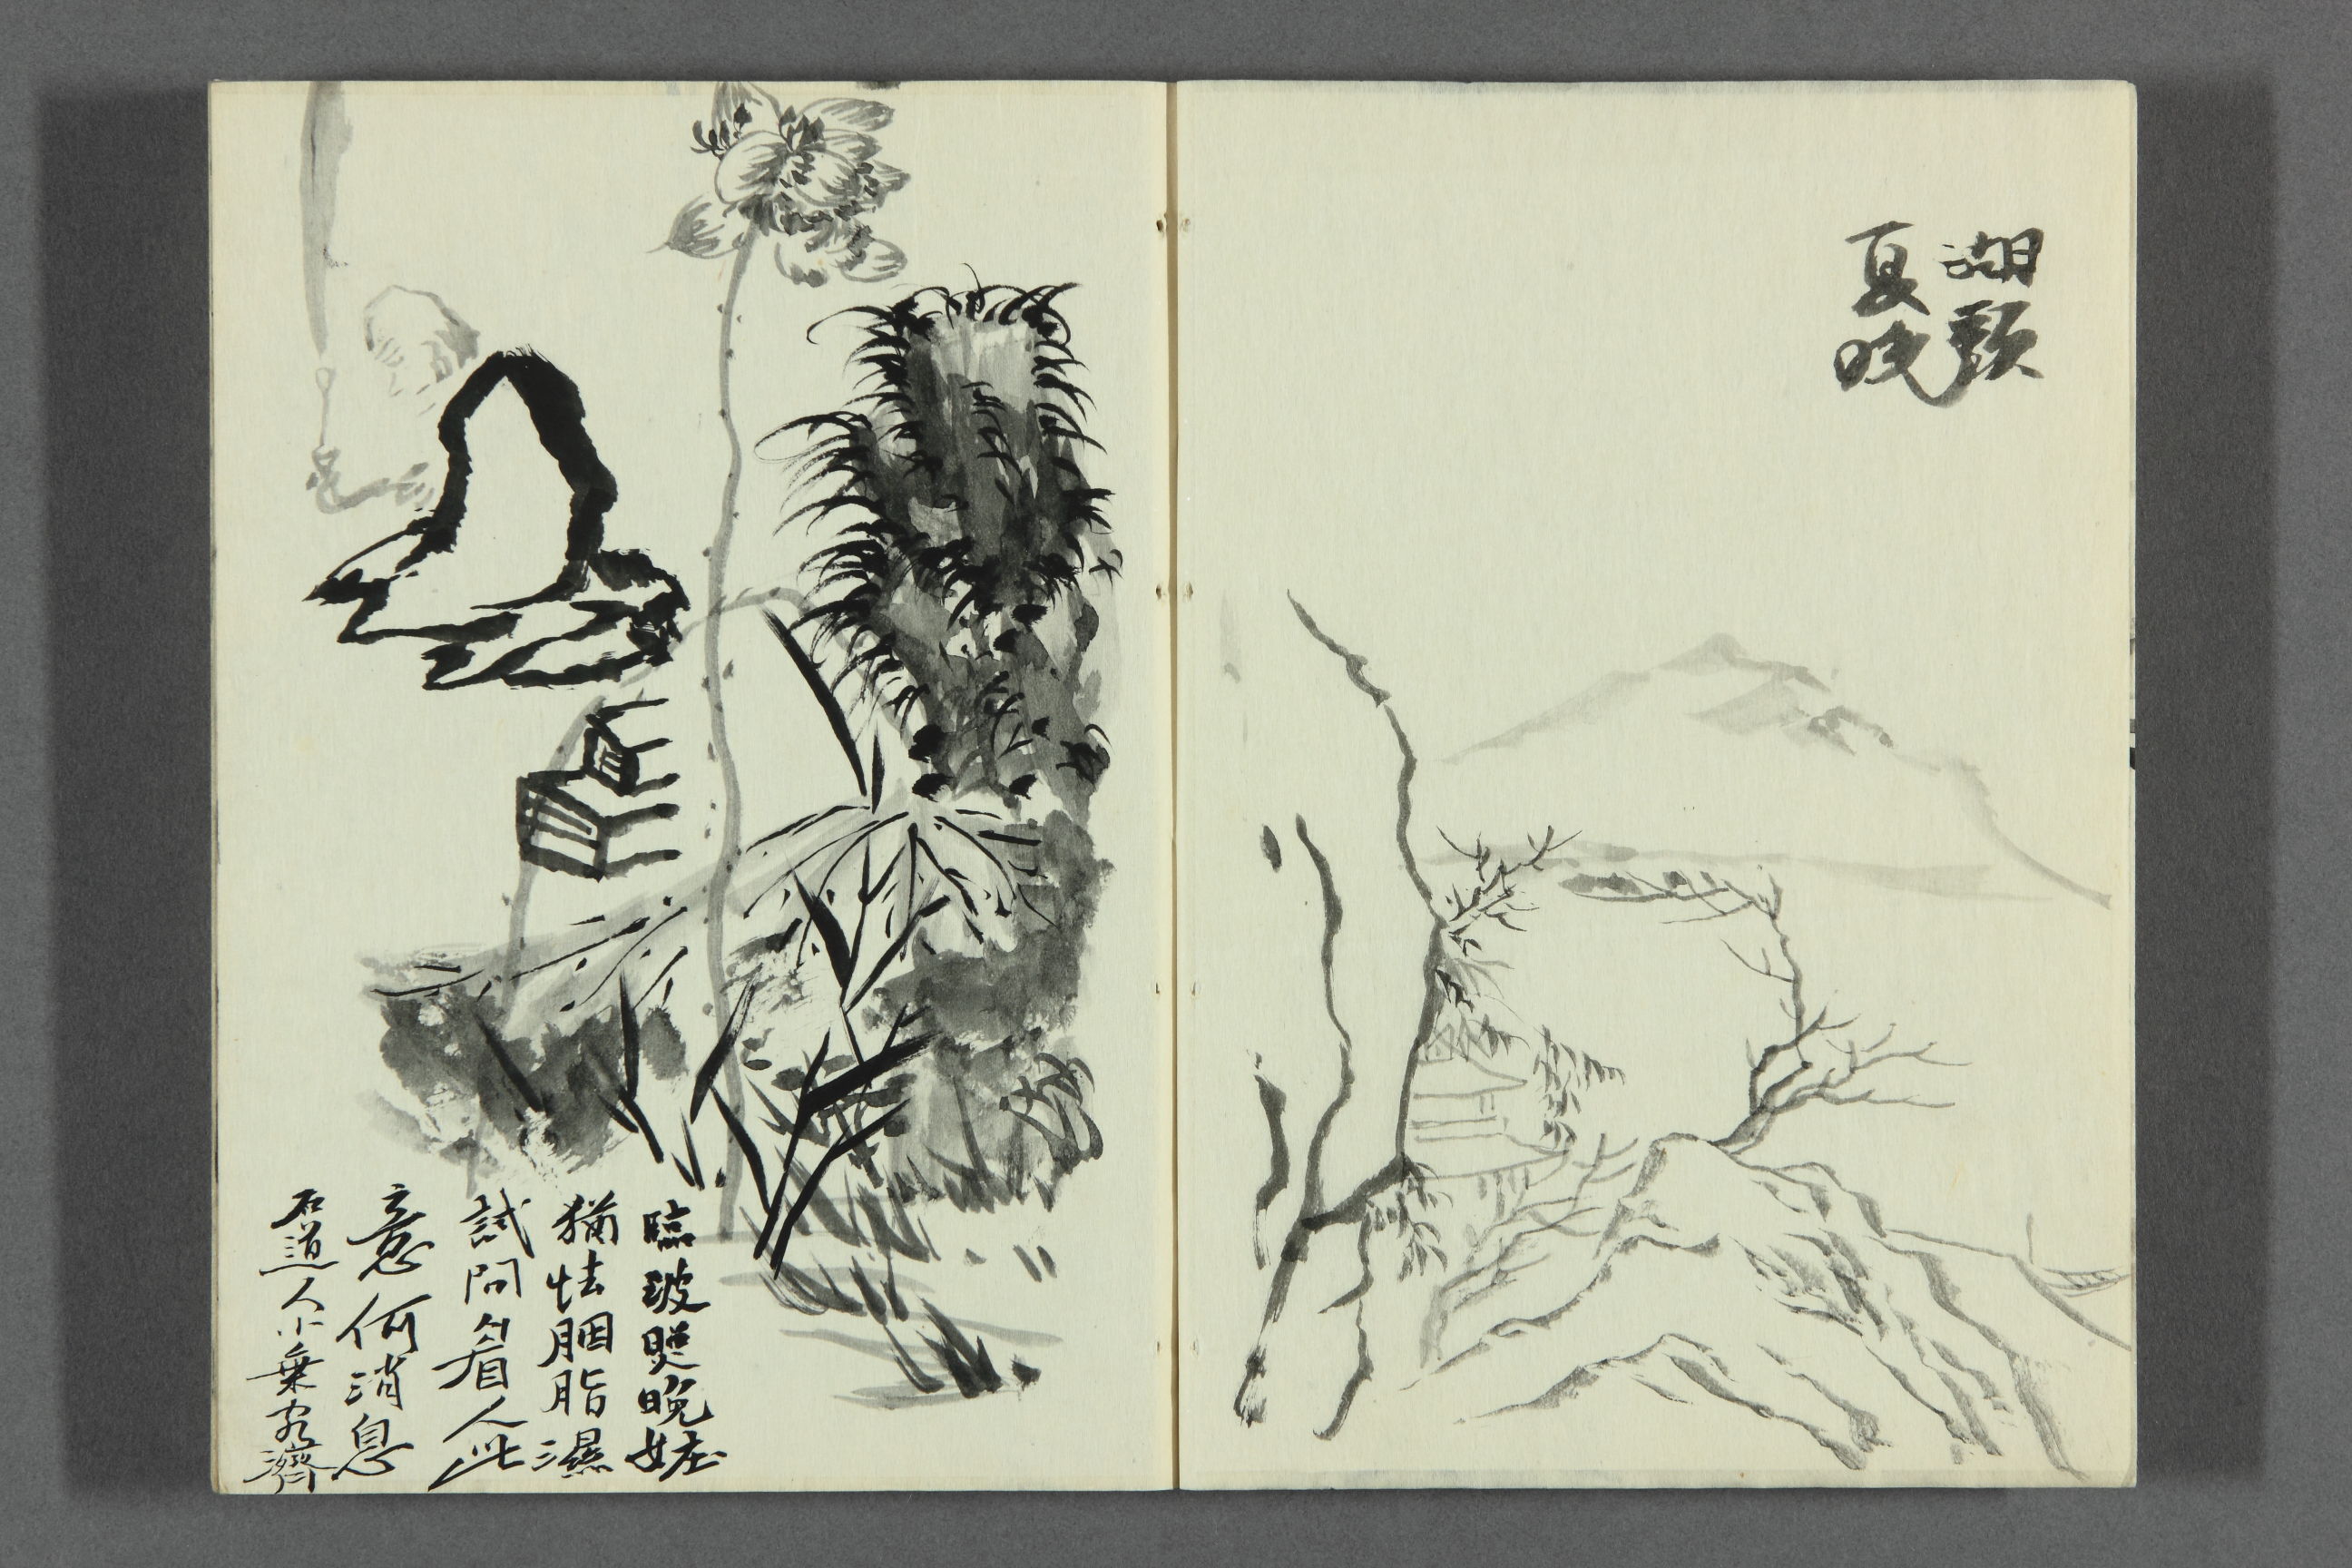 湖頭
夏晚
臨波照晚妝
猶怯胭脂濕
試問看人此
意何消息
石道人小乘客濟